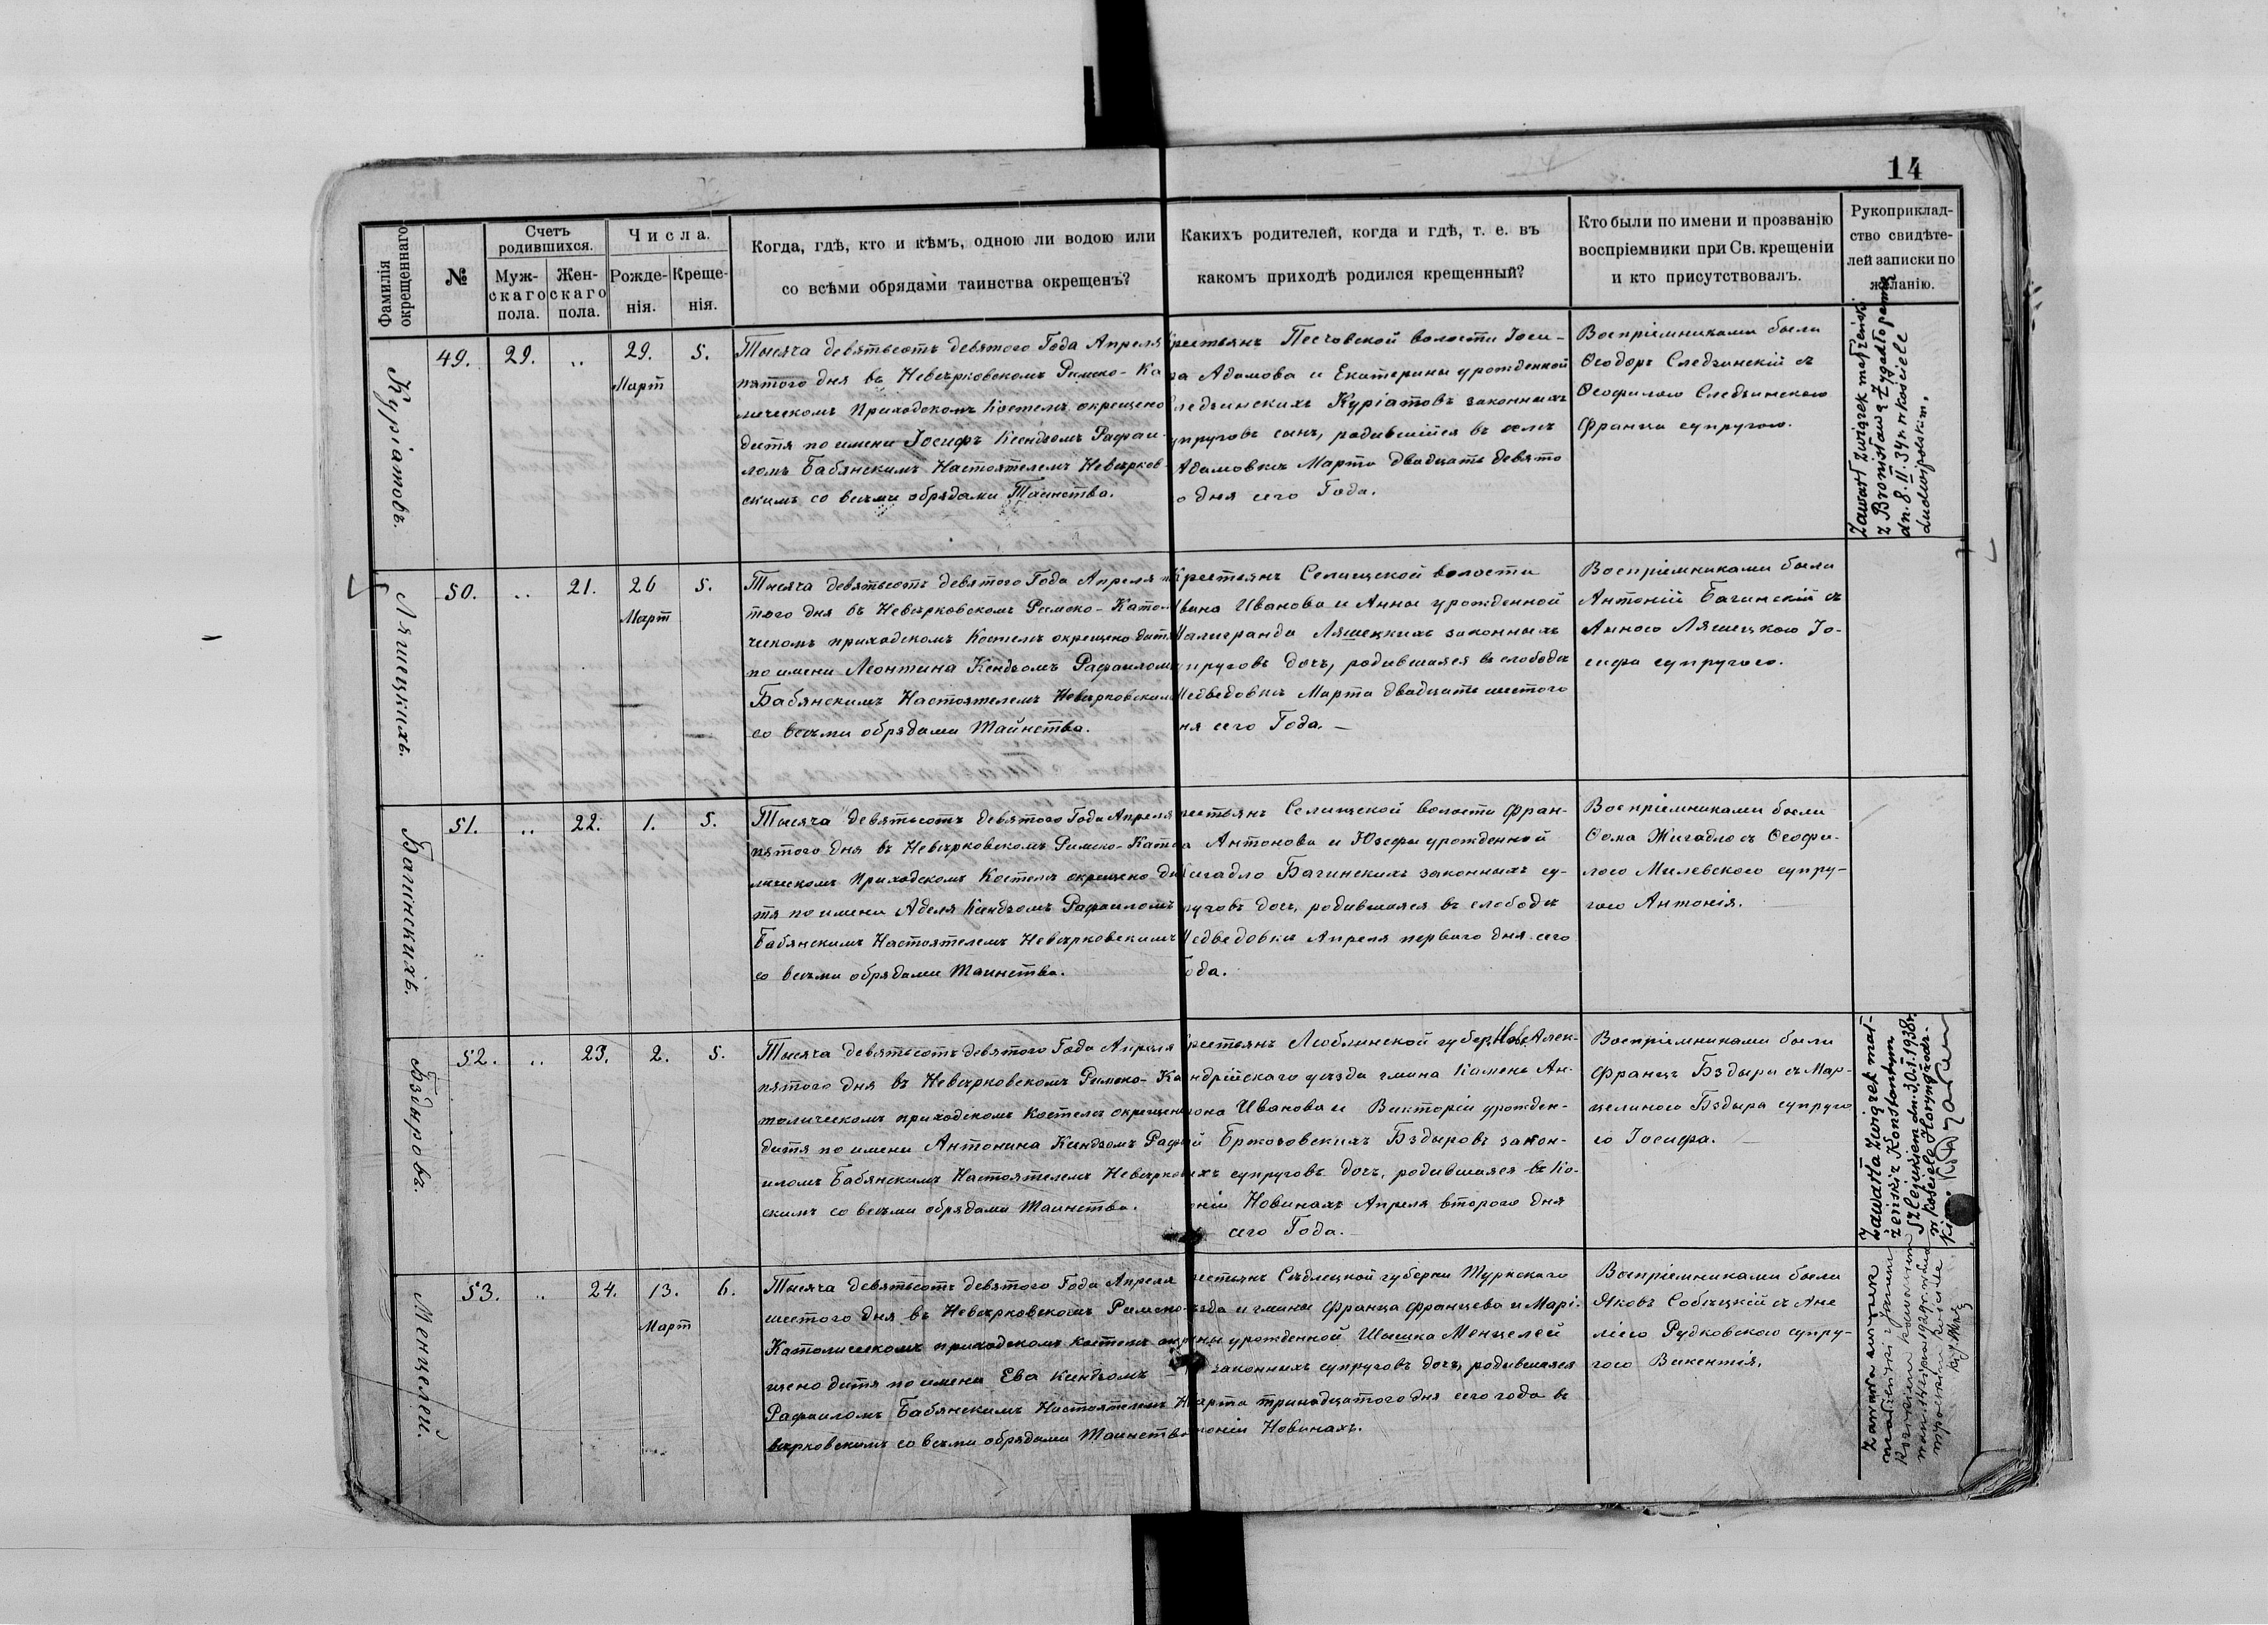 14
Фамилія окрещеннаго
№
Счетъ родившихся.
Муж-
скаго
пола.
Жен-
скаго
пола.
Числа.
Рожде-
нія.
Креще-
нія.
Когда, гдѣ, кто и кѣмъ, одною ли водою или
со всѣми обрядами таинства окрещенъ?
Какихъ родителей, когда и гдѣ, т. е. въ
какомъ приходѣ родился крещенный?
Кто были по имени и прозванію
воспріемники при Св. крещеніи
и кто присутствовалъ.
Рукоприклад-
ство свидѣте-
лей записки по
желанію.
Куріатовъ.
49. 29. „ 29. 5.
Март
Тысяча девятьсотъ девятого Года Апреля
пятого дня въ Невѣрковскомъ Римско-Ка
лическомъ Приходскомъ Костелѣ окрещено
дитя по имени Іосифъ Ксендзомъ Рафаи-
ломъ Бабянскимъ Настоятелемъ Невѣрков-
скимъ со всѣми обрядами Таинства.
рестьянъ Песчовской волости Іоси-
а Адамова и Екатерины урожденной
ледзинскихъ Куріатовъ законныхъ
упруговъ сынъ, родившійся въ селѣ
Адамовкѣ Марта двадцать девято
о дня сего Года.
Воспріемниками были
Ѳеодоръ Следзинскій съ
Ѳеофилою Следзинскою
Франца супругою.
Zawarł związek małżeński
z Bronisławą Zygadło panną
dn. 8.II.34 r. w kościele
Ludwipolskim.
Ляшецкихъ.
50. „ 21. 26 5.
Март
Тысяча девятьсотъ девятого Года Апреля п
того дня въ Невѣрковскомъ Римско-Като
ческомъ приходскомъ Костелѣ окрещено дитя
по имени Леонтина Ксендзомъ Рафаиломъ
Бабянскимъ Настоятелемъ Невѣрковскимъ
со всѣми обрядами Таинства.
Крестьянъ Селищской волости
Ивана Иванова и Анны урожденной
Малигранда Ляшецкихъ законныхъ
упруговъ дочь, родившаяся въ слободѣ
Медведовкѣ Марта двадцать шестого
ня сего Года. —
Воспріемниками были
Антоній Багинскій съ
Анною Ляшецкою Іо-
сифа супругою.
Багинскихъ.
51. „ 22. 1. 5.
Тысяча девятьсотъ девятого Года Апреля
пятого дня въ Невѣрковскомъ Римско-Като
лическомъ Приходскомъ Костелѣ окрещено ди
тя по имени Аделя Ксендзомъ Рафаиломъ
Бабянскимъ Настоятелемъ Невѣрковскимъ
со всѣми обрядами Таинства.
рестьянъ Селищской волости Фран-
а Антонова и Юзефы урожденной
Жигадло Багинскихъ законныхъ су-
руговъ дочь, родившаяся въ слободѣ
Медведовки Апреля первого дня сего
ода.
Воспріемниками были
Ѳома Жигадло съ Ѳеофи-
лою Милевскою супру-
гою Антонія.
Бздыровъ.
52. „ 23. 2. 5.
Тысяча девятьсотъ девятого Года Апреля
пятого дня въ Невѣрковскомъ Римско-Ка
толическомъ приходскомъ Костелѣ окрещено
дитя по имени Антонина Ксендзомъ Рафа
иломъ Бабянскимъ Настоятелемъ Невѣрков
скимъ со всѣми обрядами Таинства.
рестьянъ Люблинской губер. Ново Алек-
андрійскаго уѣзда гмина Камень Ан-
тона Иванова и Викторіи урожден-
й Бржозовскихъ Бздыровъ закон-
ыхъ супруговъ дочь, родившаяся въ Ко-
оніи Новинахъ Апреля второго дня
сего Года.
Воспріемниками были
Францъ Бздыра съ Мар-
целиною Бздыра супруго
ю Іосифа.
Zawarła związek mał-
żeński z Konstantym
Szlejuksem dn. 30.I.1938 r.
w kościele Horyngrodz-
kim.
Менцелей.
53. „ 24. 13. 6.
Март
Тысяча девятьсотъ девятого Года Апреля
шестого дня въ Невѣрковскомъ Римско-
Католическомъ приходскомъ костелѣ окре
щено дитя по имени Ева Ксендзомъ
Рафаиломъ Бабянскимъ Настоятелемъ Не
вѣрковскимъ со всѣми обрядами Таинства
рестьянъ Сѣдлецкой губерни Туркскаго
ѣзда и гмины Франца Францева и Марі-
ны урожденной Шышка Менцелей
законныхъ супруговъ дочь, родившаяся
Марта тринадцатого дня сего года въ
лоніи Новинахъ.
Воспріемниками были
Яковъ Собѣцкій съ Ане
ліею Рудковскою супру-
гою Викентія.